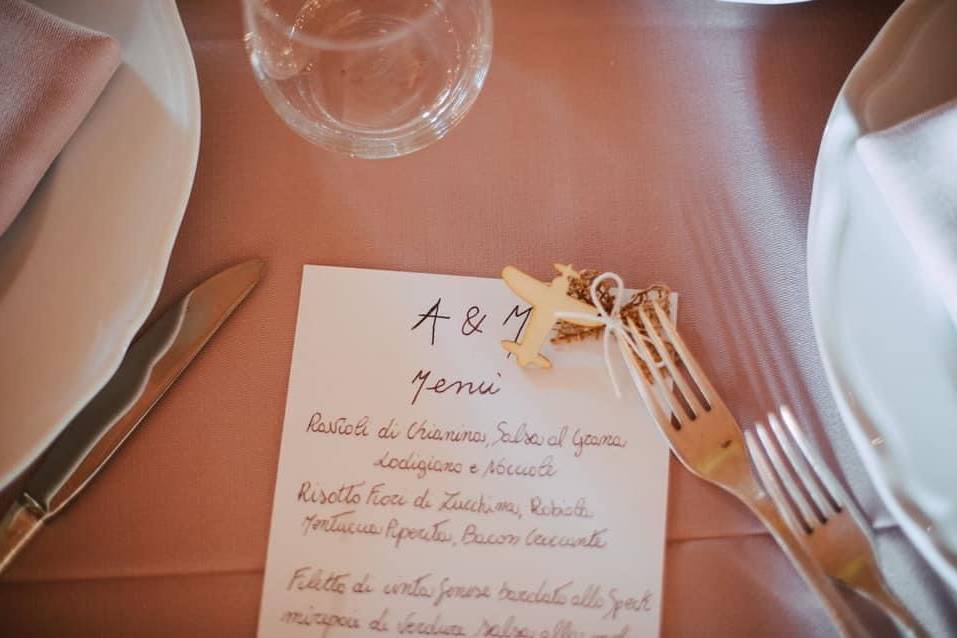 A & M
Menù
Ravioli di Chianina, Salsa al Grana
Lodigiano e Nocciole
Risotto Fiori di Zucchina, Robiola
Mentuccia Piperita, Bacon Croccante
Filetto di cinta Senese bardato allo Speck
mirepoix di Verdura Salsa alle